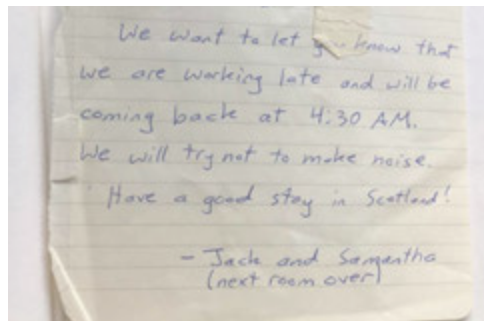 We want to let you know that
we are working late and will be
coming back at 4:30 AM.
We will try not to make noise.
Have a good stay in Scotland!
- Jack and Samantha
(next room over)